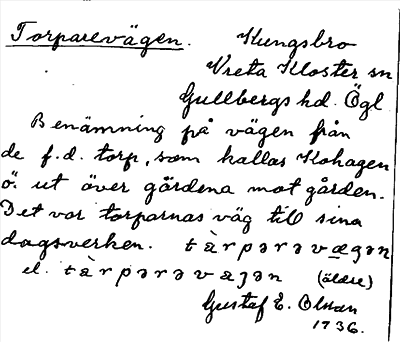 Torparevägen.
Kungsbro
Vreta Kloster sn
Gullbergs hd. Ögl
Benämning på vägen från
de f.d. torp, som kallas Kohagen
ö. ut över gärdena mot gården.
Det var torparnas väg till sina
dagsverken. tὰrpərəvægən
el. tὰrpərəvæȷən (äldre)
Gustaf E. Olsson
1736.